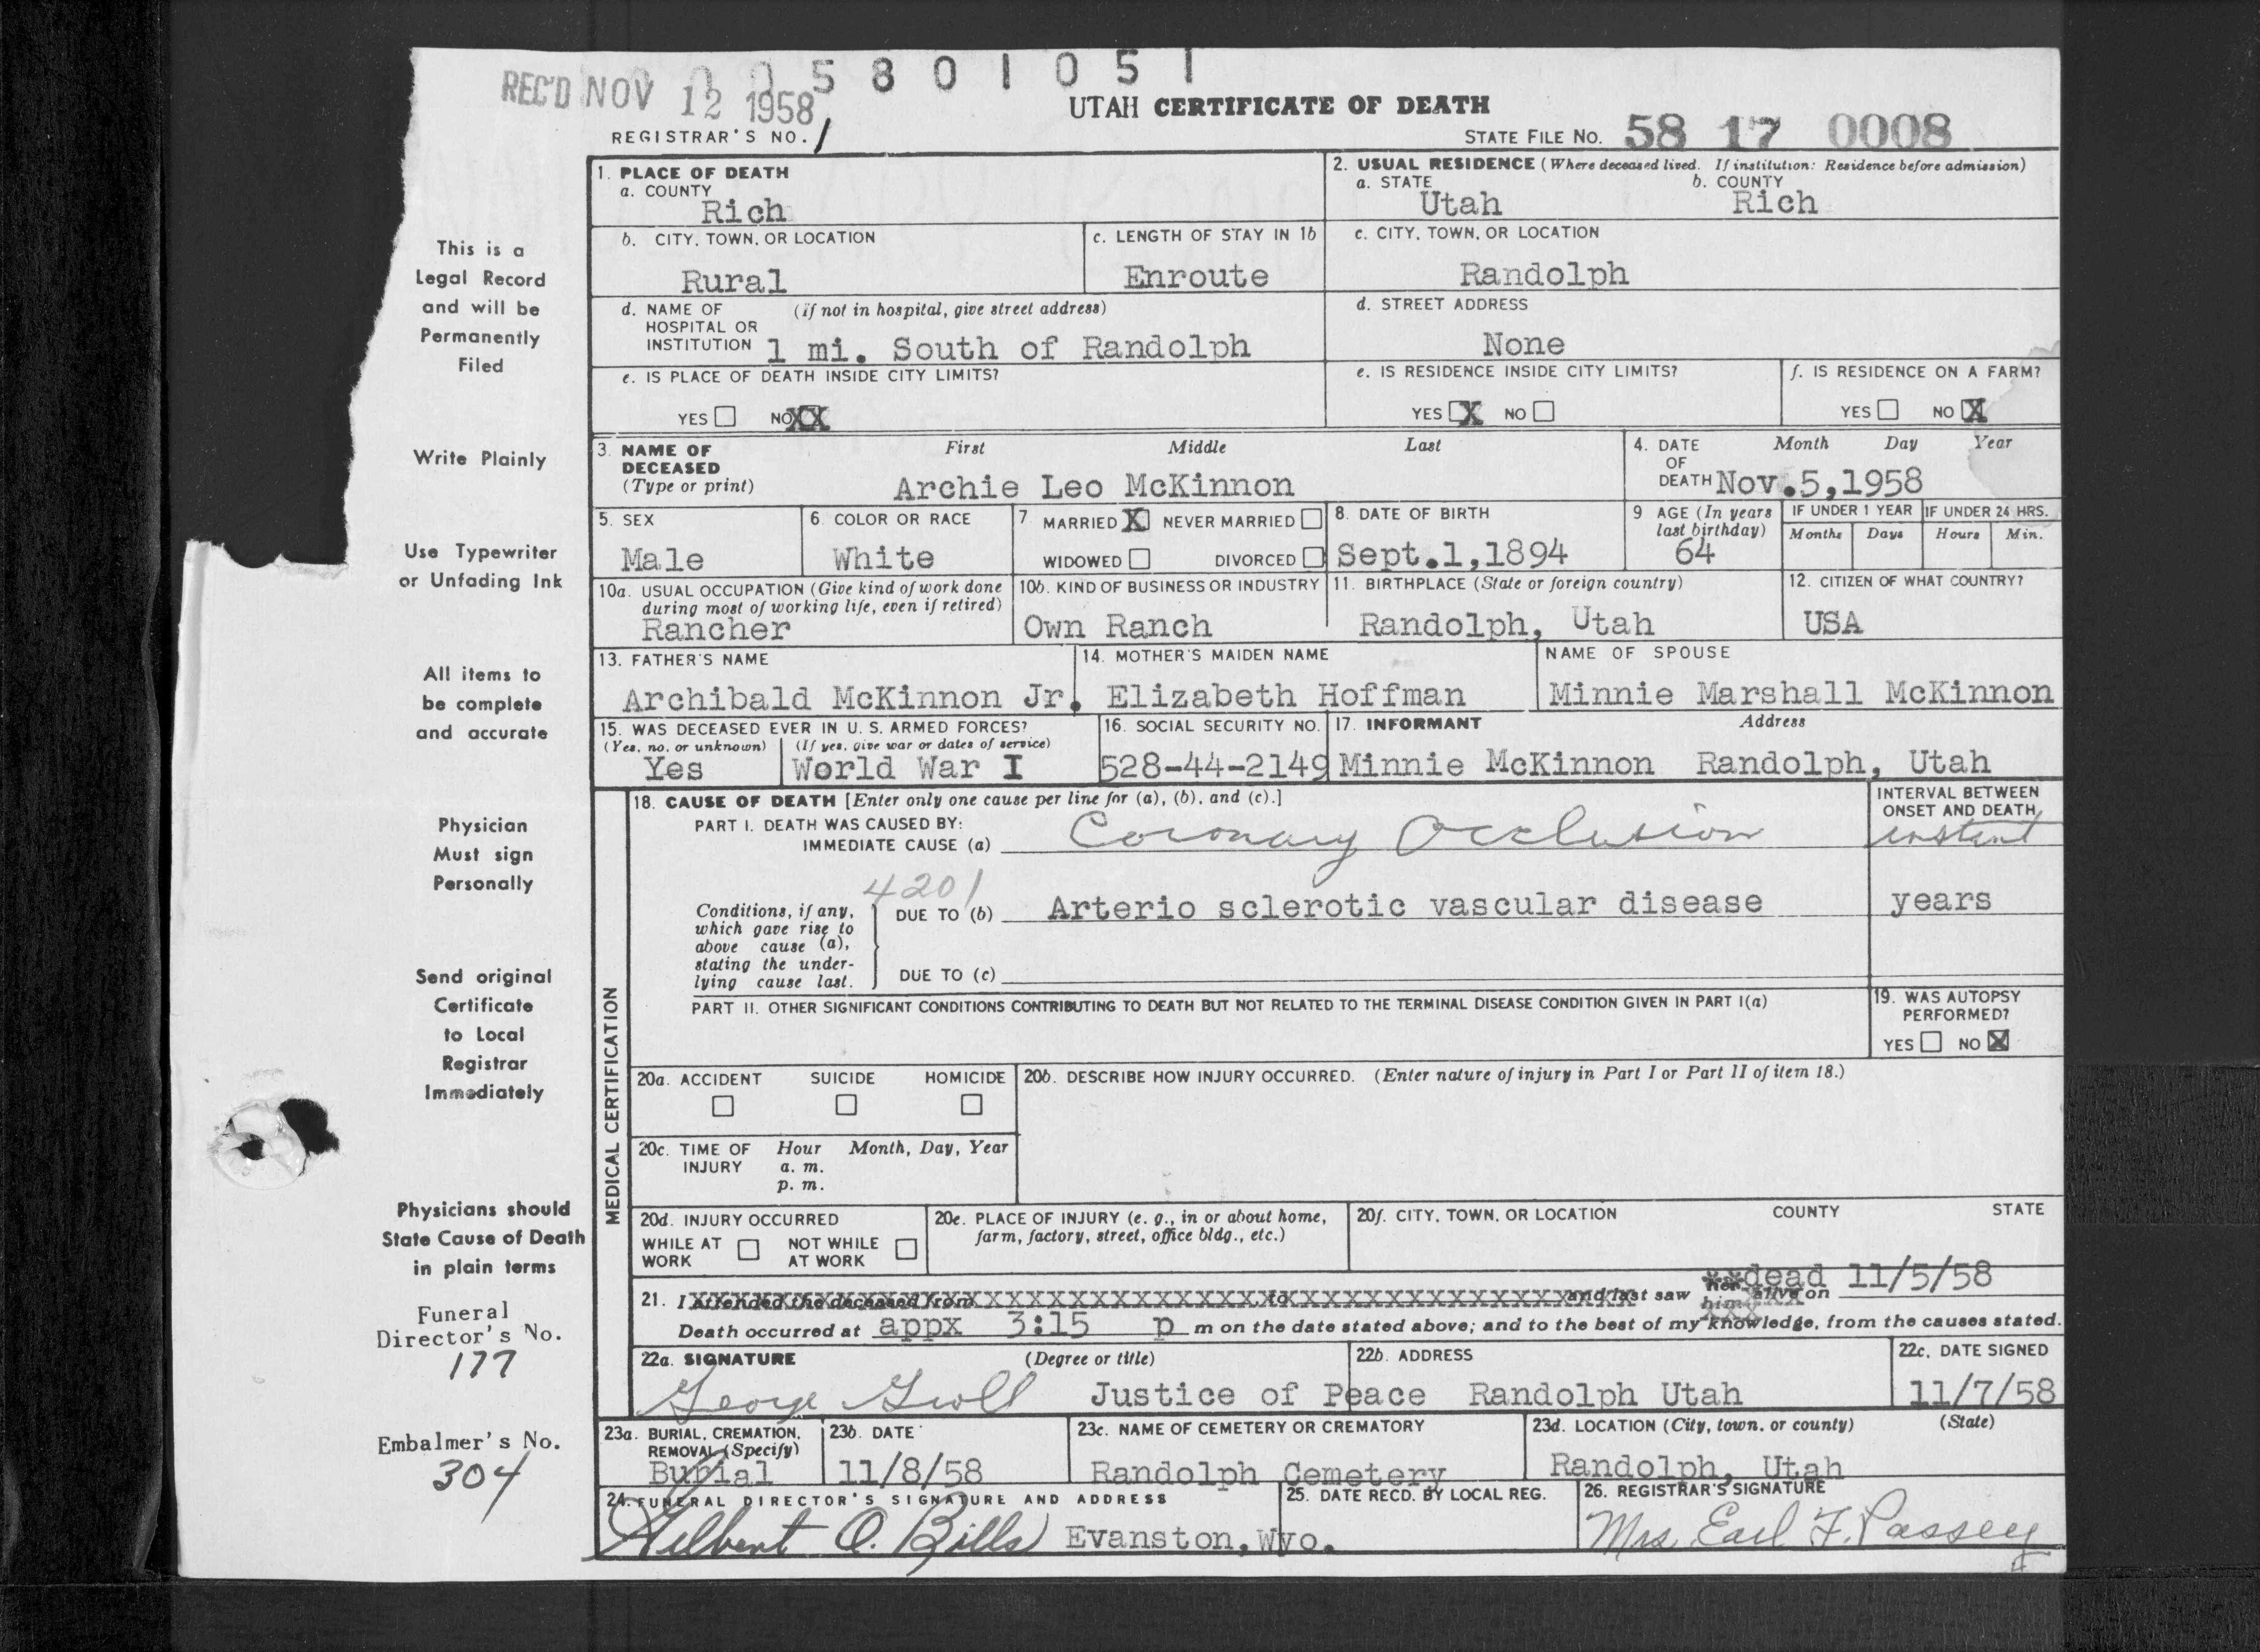 5 8 0 1 0 5 1
REC'D NOV 12 1958
UTAH CERTIFICATE OF DEATH
REGISTRAR'S NO. 1
STATE FILE NO. 58 17 0008
1. PLACE OF DEATH
a. COUNTY
Rich
2. USUAL RESIDENCE (Where deceased lived. If institution: Residence before admission)
a. STATE b. COUNTY
Utah Rich
b. CITY, TOWN, OR LOCATION
Rural
c. LENGTH OF STAY IN 1b
Enroute
c. CITY, TOWN, OR LOCATION
Randolph
d. NAME OF (If not in hospital, give street address)
HOSPITAL OR
INSTITUTION 1 mi. South of Randolph
d. STREET ADDRESS
None
e. IS PLACE OF DEATH INSIDE CITY LIMITS?
YES NO XX
e. IS RESIDENCE INSIDE CITY LIMITS?
YES X NO
f. IS RESIDENCE ON A FARM?
YES NO X
3. NAME OF First Middle Last
DECEASED
(Type or print) Archie Leo McKinnon
4. DATE Month Day Year
OF
DEATH Nov.5,1958
5. SEX
Male
6. COLOR OR RACE
White
7. MARRIED X NEVER MARRIED
WIDOWED DIVORCED
8. DATE OF BIRTH
Sept.1,1894
9 AGE (In years
last birthday)
64
IF UNDER 1 YEAR
Months Days
IF UNDER 24 HRS.
Hours Min.
10a. USUAL OCCUPATION (Give kind of work done
during most of working life, even if retired)
Rancher
10b. KIND OF BUSINESS OR INDUSTRY
Own Ranch
11. BIRTHPLACE (State or foreign country)
Randolph, Utah
12. CITIZEN OF WHAT COUNTRY?
USA
13. FATHER'S NAME
Archibald McKinnon Jr.
14. MOTHER'S MAIDEN NAME
Elizabeth Hoffman
NAME OF SPOUSE
Minnie Marshall McKinnon
15. WAS DECEASED EVER IN U. S. ARMED FORCES?
(Yes, no, or unknown) (If yes, give war or dates of service)
Yes World War I
16. SOCIAL SECURITY NO.
528-44-2149
17. INFORMANT Address
Minnie McKinnon Randolph, Utah
MEDICAL CERTIFICATION
18. CAUSE OF DEATH [Enter only one cause per line for (a), (b), and (c).]
INTERVAL BETWEEN
ONSET AND DEATH
PART I. DEATH WAS CAUSED BY:
IMMEDIATE CAUSE (a) Coronary Occlusion instant
4201
Conditions, if any,
which gave rise to
above cause (a),
stating the under-
lying cause last.
DUE TO (b) Arterio sclerotic vascular disease years
DUE TO (c)
PART II. OTHER SIGNIFICANT CONDITIONS CONTRIBUTING TO DEATH BUT NOT RELATED TO THE TERMINAL DISEASE CONDITION GIVEN IN PART I(a)
19. WAS AUTOPSY
PERFORMED?
YES NO X
20a. ACCIDENT SUICIDE HOMICIDE
20b. DESCRIBE HOW INJURY OCCURRED. (Enter nature of injury in Part I or Part II of item 18.)
20c. TIME OF Hour Month, Day, Year
INJURY a. m.
p. m.
20d. INJURY OCCURRED
WHILE AT NOT WHILE
WORK AT WORK
20e. PLACE OF INJURY (e. g., in or about home,
farm, factory, street, office bldg., etc.)
20f. CITY, TOWN, OR LOCATION COUNTY STATE
21. I attended the deceased from to and last saw her him alive on **dead 11/5/58
Death occurred at appx 3:15 p m on the date stated above; and to the best of my knowledge, from the causes stated.
22a. SIGNATURE (Degree or title)
George Groll Justice of Peace
22b. ADDRESS
Randolph Utah
22c. DATE SIGNED
11/7/58
23a. BURIAL, CREMATION,
REMOVAL (Specify)
Burial
23b. DATE
11/8/58
23c. NAME OF CEMETERY OR CREMATORY
Randolph Cemetery
23d. LOCATION (City, town, or county) (State)
Randolph, Utah
24. FUNERAL DIRECTOR'S SIGNATURE AND ADDRESS
Gilbert O. Bills Evanston, Wyo.
25. DATE RECD. BY LOCAL REG.
26. REGISTRAR'S SIGNATURE
Mrs Earl F. Passey
This is a
Legal Record
and will be
Permanently
Filed
Write Plainly
Use Typewriter
or Unfading Ink
All items to
be complete
and accurate
Physician
Must sign
Personally
Send original
Certificate
to Local
Registrar
Immediately
Physicians should
State Cause of Death
in plain terms
Funeral
Director's No.
177
Embalmer's No.
304